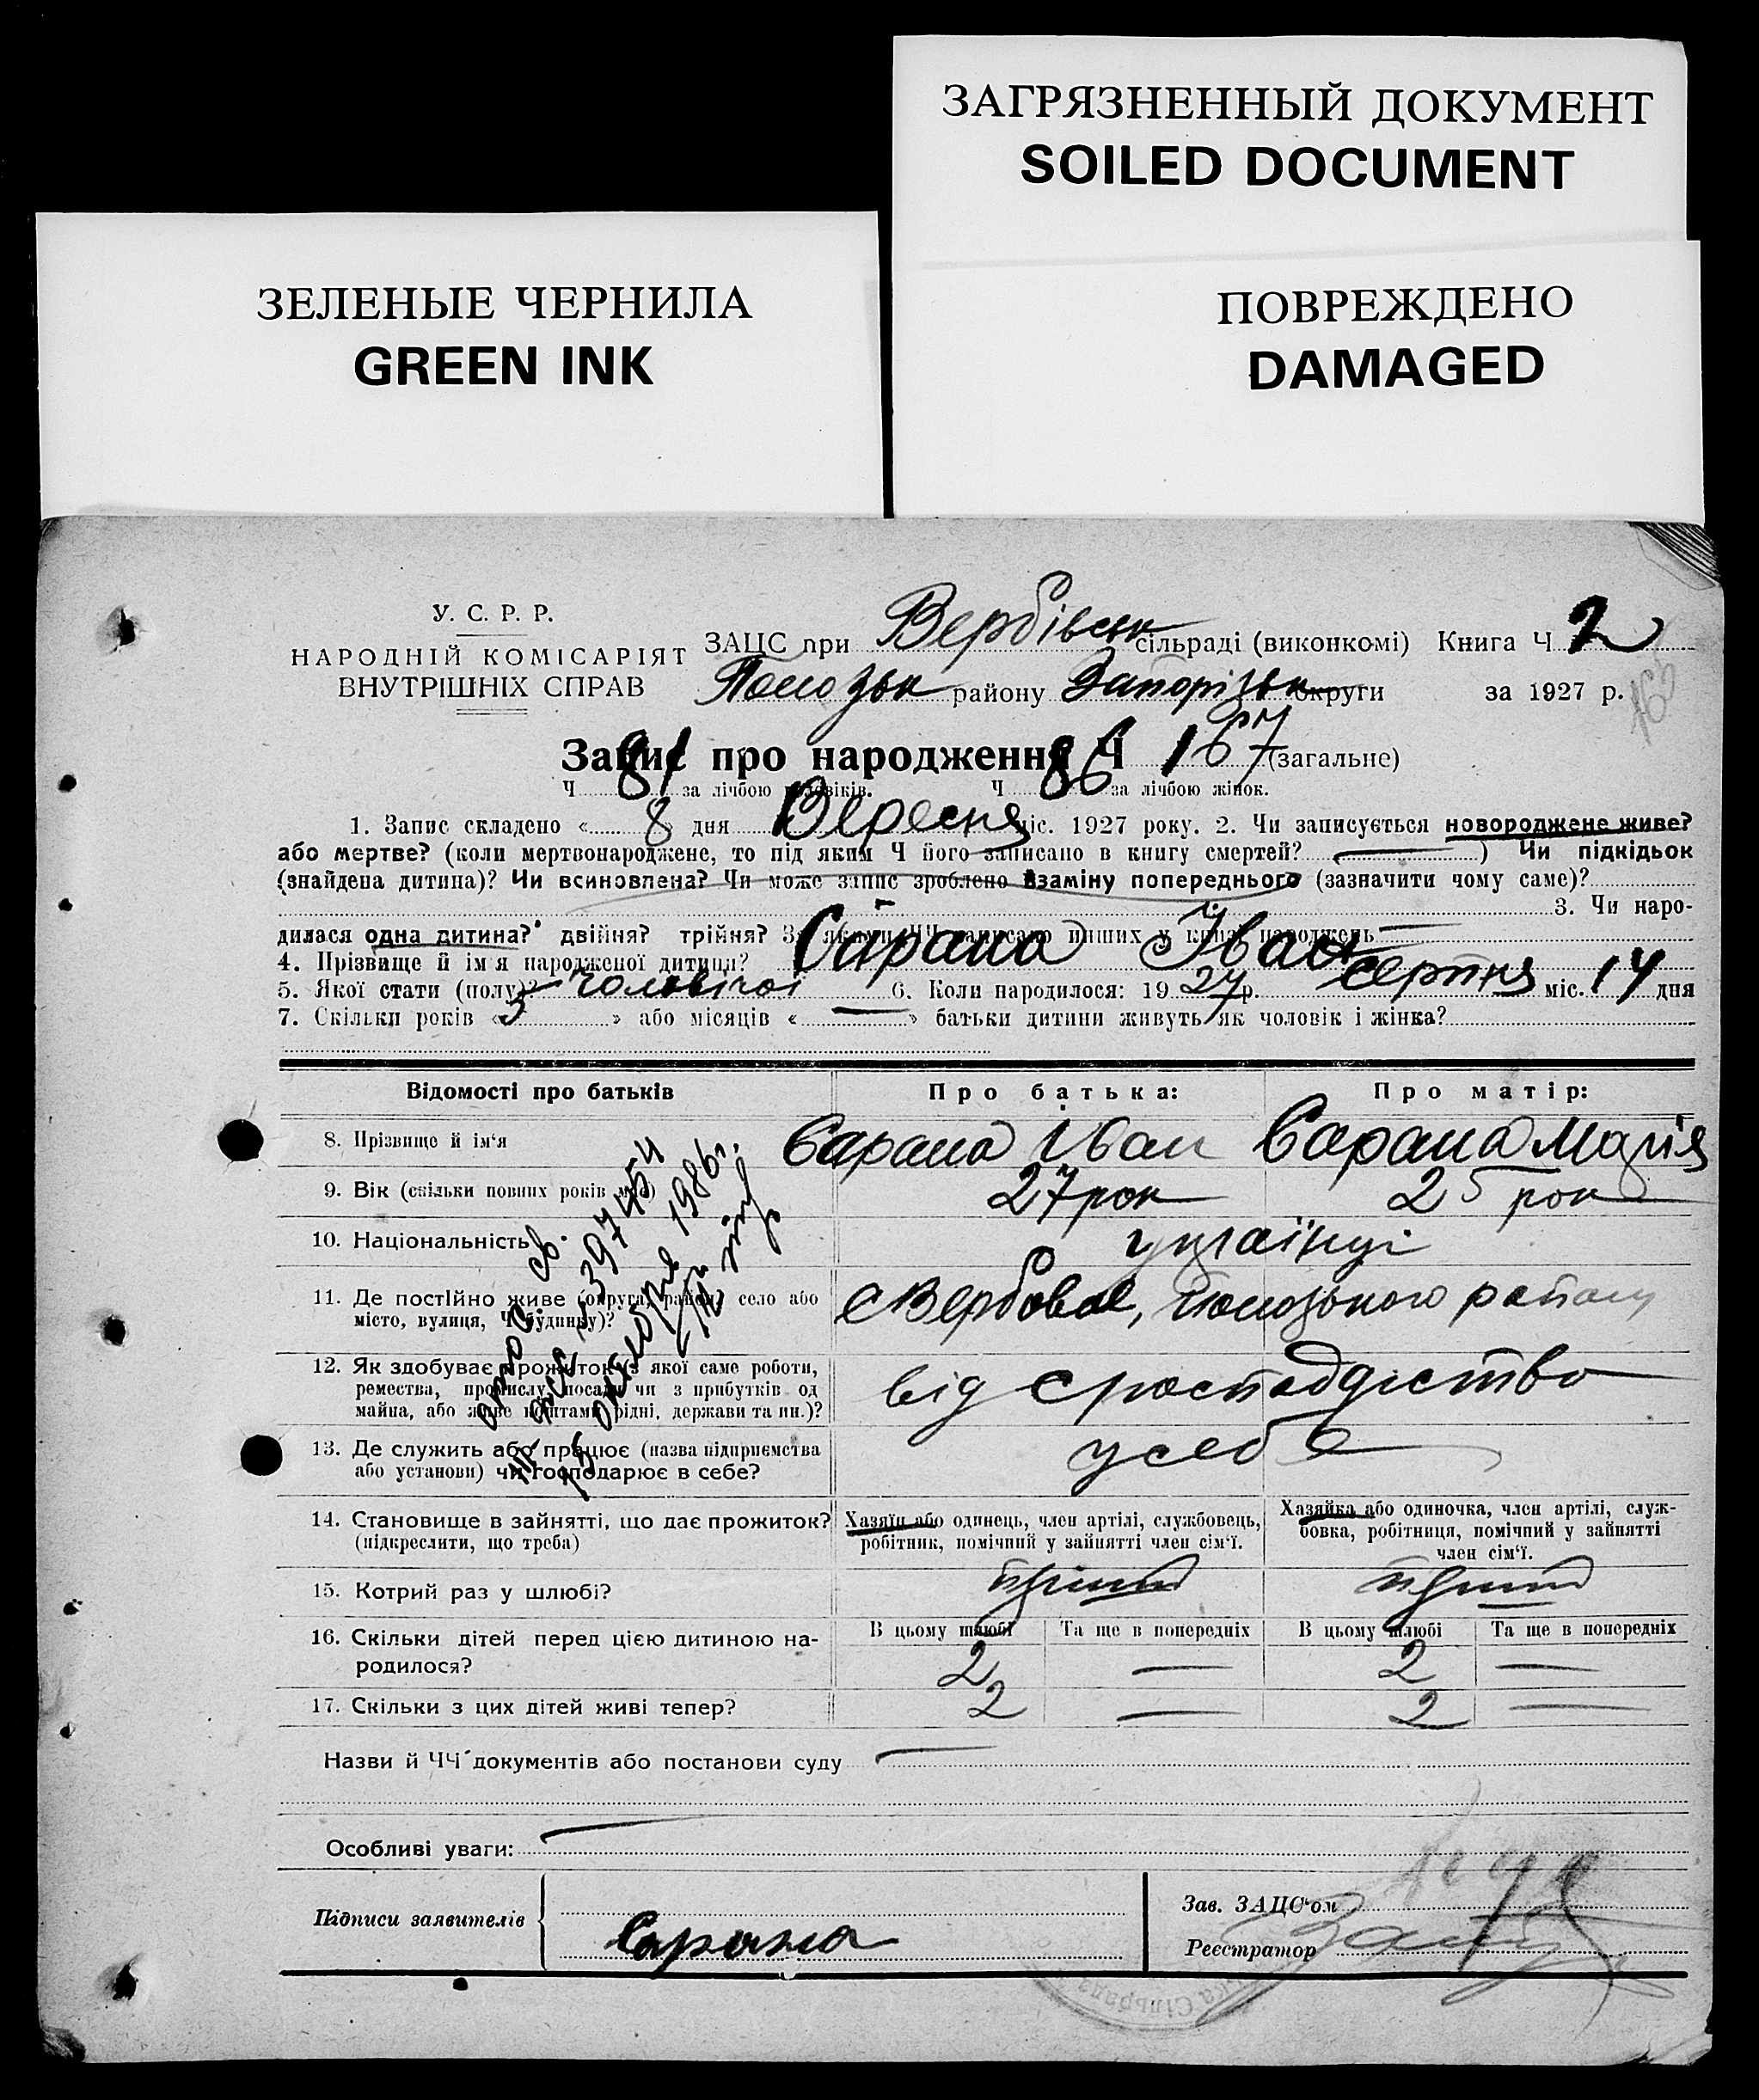 ЗАГРЯЗНЕННЫЙ ДОКУМЕНТ
SOILED DOCUMENT
ЗЕЛЕНЫЕ ЧЕРНИЛА
GREEN INK
ПОВРЕЖДЕНО
DAMAGED
У. С. Р. Р.
НАРОДНІЙ КОМІСАРІЯТ
ВНУТРІШНІХ СПРАВ
ЗАЦС при Вербівськ сільраді (виконкомі) Книга Ч 2
району Запорізьк округи за 1927 р.
Запис про народження Ч 167 (загальне)
Ч 81 за лічбою чоловіків. Ч 86 за лічбою жінок.
1. Запис складено « 8 дня Вересня міс. 1927 року. 2. Чи записується новороджене живе?
або мертве? (коли мертвонароджене, то під яким Ч його записано в книгу смертей? —) Чи підкідьок
(знайдена дитина)? Чи всиновлена? Чи може запис зроблено взаміну попереднього (зазначити чому саме)?
3. Чи наро-
дилася одна дитина? двійня? трійня? За якими ЧЧ записано инших у книзі народжень —
4. Прізвище й ім'я народженої дитини? Сарана Іван
5. Якої стати (полу)? чоловічої 6. Коли народилося: 1927 р. серпня міс. 14 дня
7. Скільки років « 3 » або місяців « — » батьки дитини живуть як чоловік і жінка?
Відомості про батьків Про батька: Про матір:
8. Прізвище й ім'я Сарана Іван Сарана Марія
9. Вік (скільки повних років має) 27 рок 25 рок
10. Національність українці
11. Де постійно живе (округа, район, село або с Вербове, Пологського району
місто, вулиця, Ч будинку)?
12. Як здобуває прожиток (з якої саме роботи, від
ремества, промислу, посади чи з прибутків од
майна, або живе коштами рідні, держави та ин.)?
13. Де служить або працює (назва підприємства у себе
або установи) чи господарює в себе?
14. Становище в зайнятті, що дає прожиток? Хазяїн або одинець, член артілі, службовець, Хазяйка або одиночка, член артілі, служ-
(підкреслити, що треба) робітник, помічний у зайнятті член сім'ї. бовка, робітниця, помічний у зайнятті
член сім'ї.
15. Котрий раз у шлюбі?
16. Скільки дітей перед цією дитиною на- В цьому шлюбі Та ще в попередніх В цьому шлюбі Та ще в попередніх
родилося? 2 — 2 —
17. Скільки з цих дітей живі тепер? 2 — 2 —
Назви й ЧЧ документів або постанови суду —
Особливі уваги: —
Підписи заявителів Сарана
Зав. ЗАЦС'ом
Реєстратор